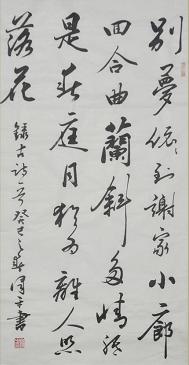 别夢依〻到謝家小廊
回合曲蘭斜多情祇
是春庭月猶为離人照
落花
錄古诗一首癸巳之書